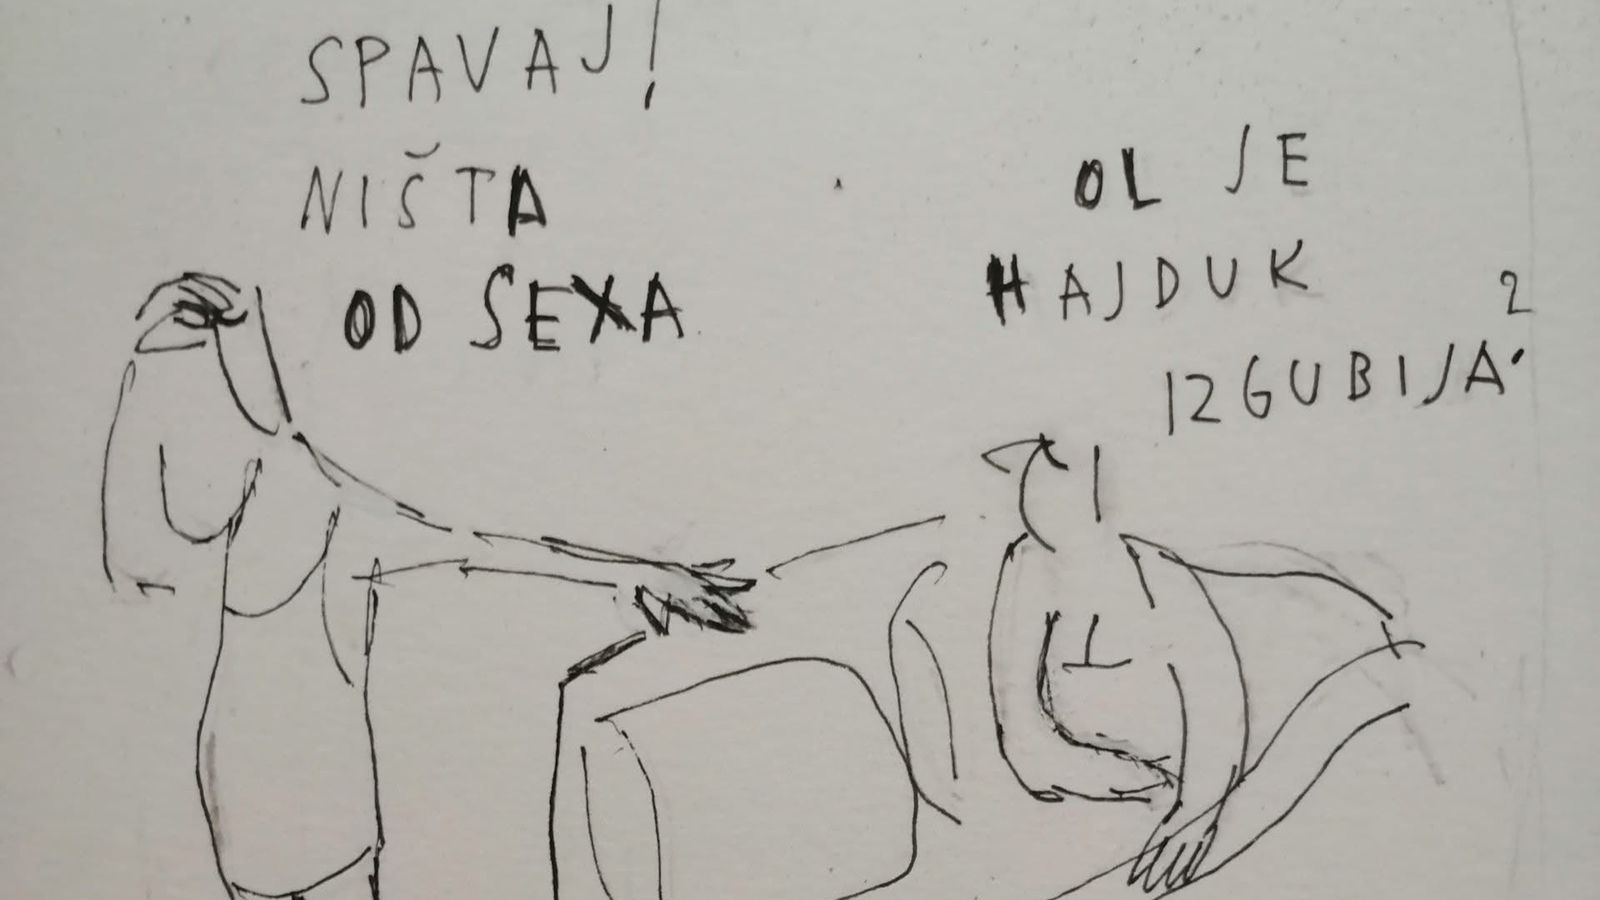 SPAVAJ!
NIŠTA
OD SEXA
OL JE
HAJDUK
IZGUBIJA?